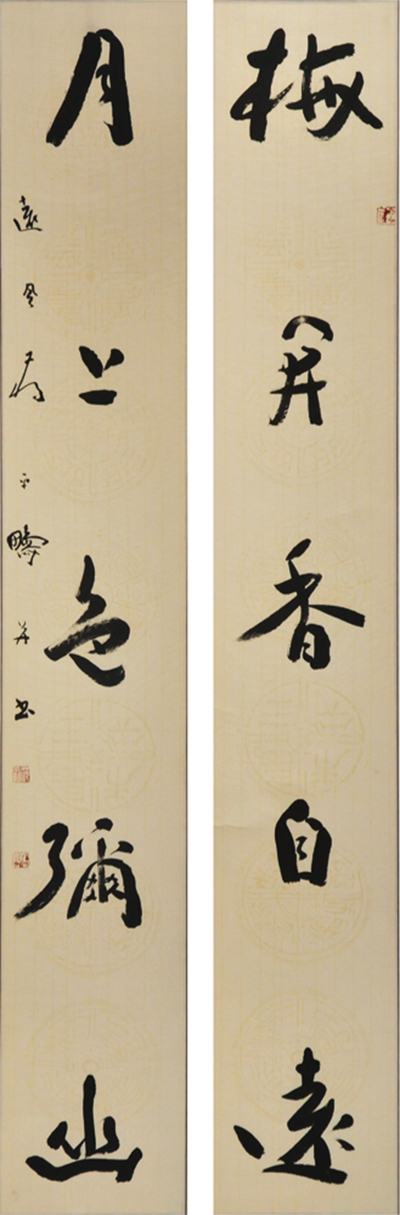 梅開香自遠
月上色彌幽